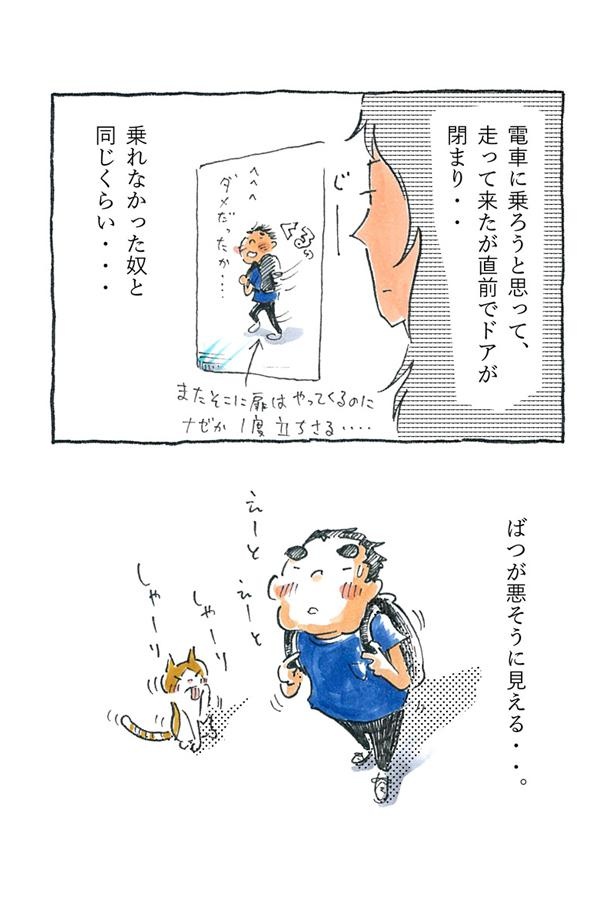 電車に乗ろうと思って、
走って来たが直前でドアが
閉まり・・
じー
くるっ
へへへ
ダメだったか・・・
またそこに扉はやってくるのに
ナゼか1度立ちさる・・・・
乗れなかった奴と
同じくらい・・・
ばつが悪そうに見える・・。
えーと
えーと
しゃーり
しゃーり